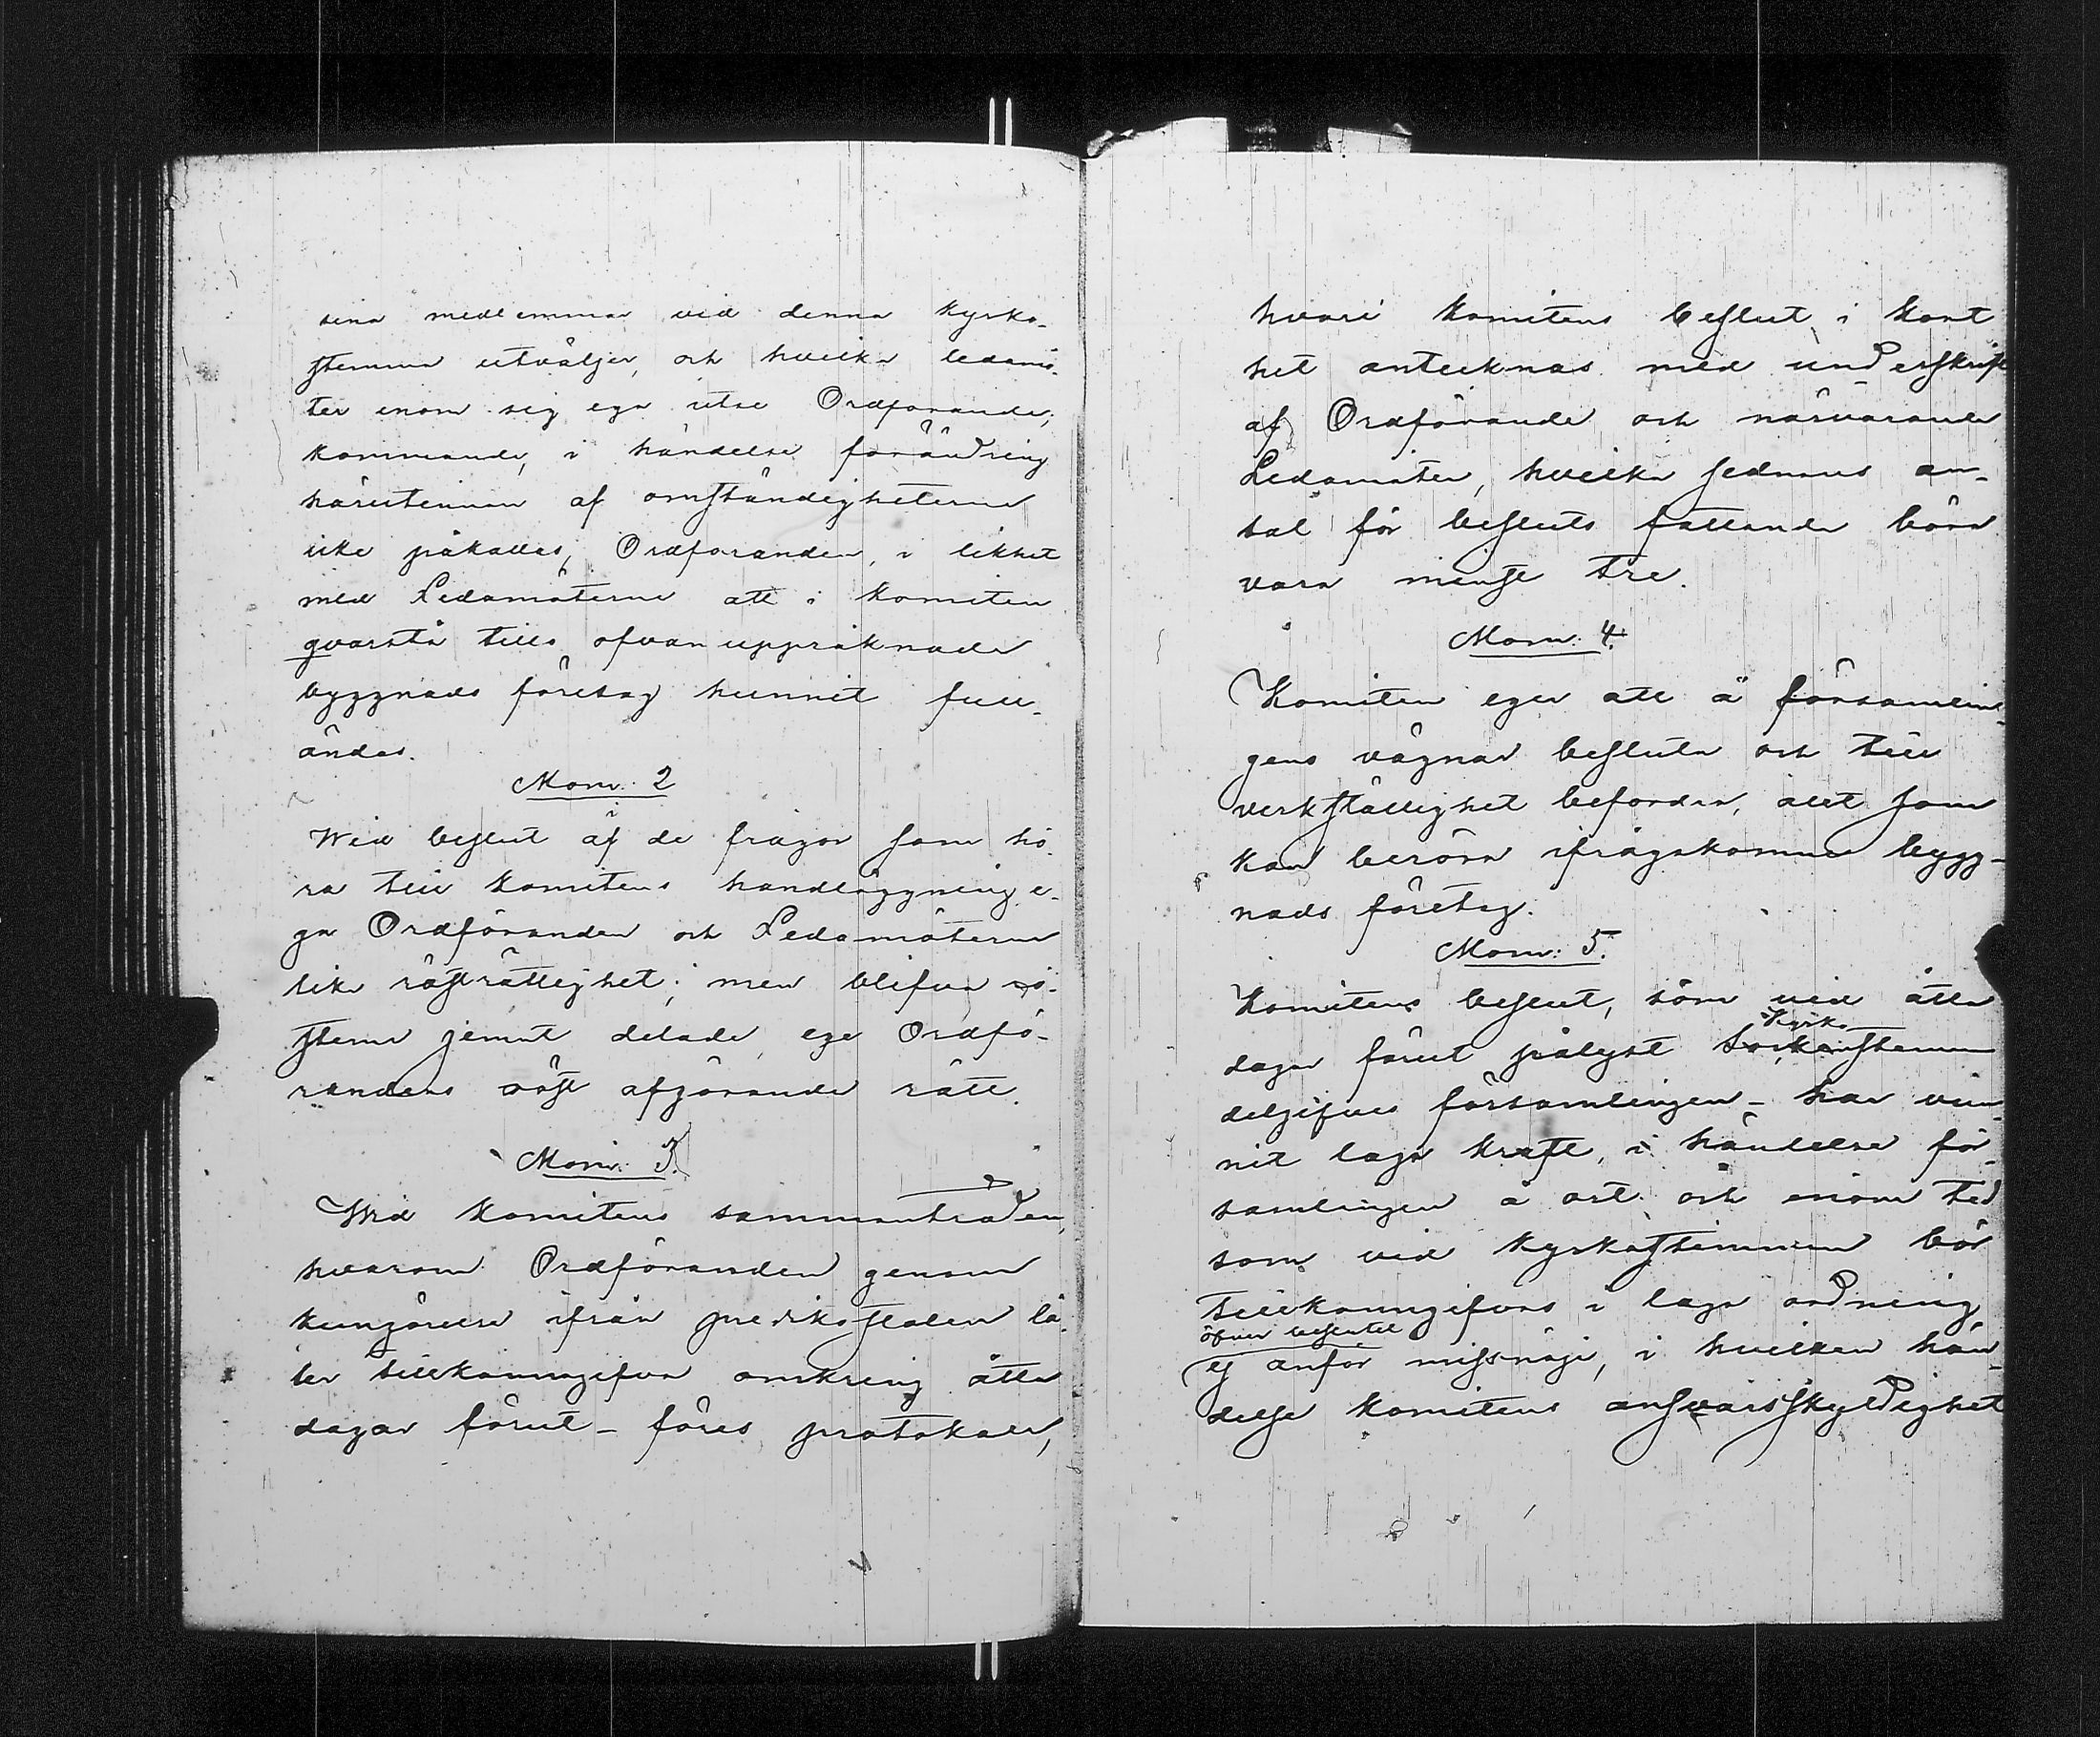 sina medlemmar vid denna kyrko-
stemma utväljer, och hvilka ledamö-
ter inom sig ega utse Ordförande;
kommande, i händelse förändring
härutinnan af omständigheterna
icke påkallas, Ordföranden, i likhet
med Ledamöterne att i komiten
qvarstå tills ofvan uppräknade
byggnads företag hunnit full-
ändas.
Mom: 2
Wid beslut af de frågor som hö-
ra till komitens handläggning e-
ga Ordföranden och Ledamöterna
lika röstträttighet; men blifva rö-
sterna jemnt delade, ege Ordfö-
randens röst afgörande rätt.
Mom: 3.
Wid komitens sammanträden,
hvarom Ordföranden genom
kungörelse ifrån predikostolen lå-
ter tillkännagifva omkring åtta
dagar förut – föres protokoll,
hvari komitens beslut i kort
het antecknas med underskrift
af Ordförande och närvarande
Ledamöter, hvilka sednares an-
tal för besluts fattande böra
vara minst tre.
Mom: 4.
Komiten eger att å församlin-
gens vägnar besluta och till
verkställighet befordra, allt som
kan beröra ifrågakomne bygg-
nads företag.
Mom: 5.
Komitens beslut, som vid åtta
Kyrko
dagar förut pålyst Sockenstemma
delgifves församlingen – har vun-
nit laga kraft, i händelse för-
samlingen å ort och inom tid
som vid kyrkostemman bör
tillkännagifvas i laga ordning,
öfver beslutet
ej anför missnöje, i hvilken hän-
delse komitens ansvarsskyldighet